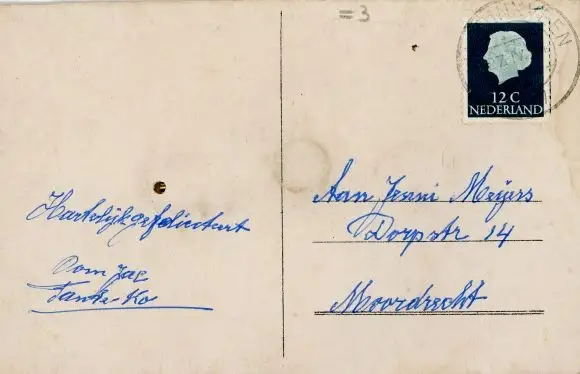 = 3
12 C
NEDERLAND
Hartelijk gefeliciteerd
Oom Jac
Tante Ko
Aan Jenni Meyers
Dorpstr 14
Moordrecht